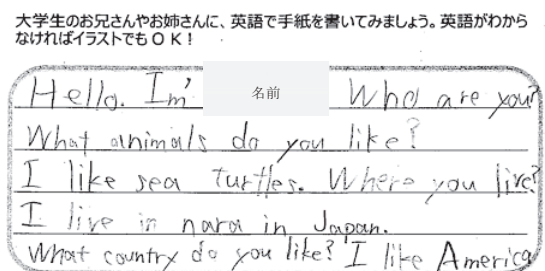 大学生のお兄さんやお姉さんに、英語で手紙を書いてみましょう。英語がわから
なければイラストでもＯＫ！
Hello. Im' 名前 Who are you?
What animals do you like?
I like sea turtles. Where you live?
I live in nara in Japan.
What country do you like? I like America